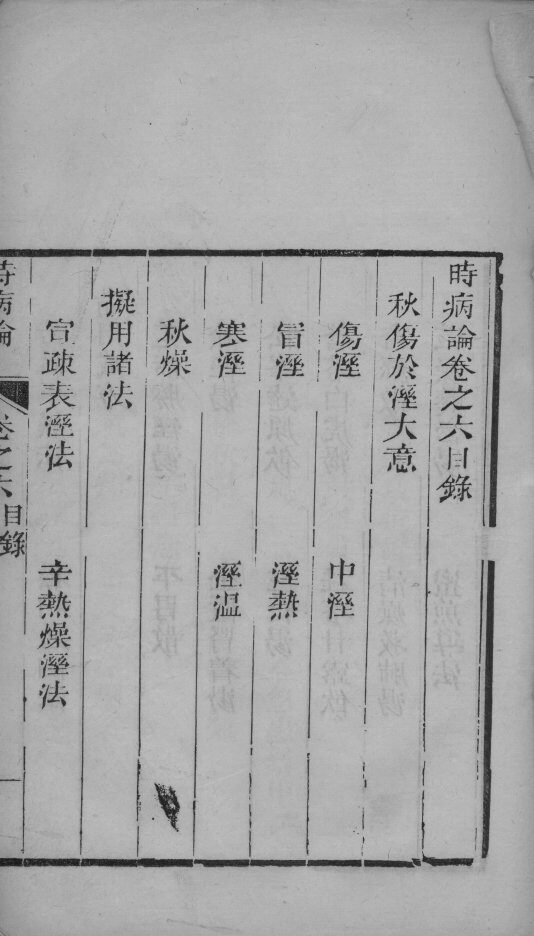 時病論卷之六目錄
秋傷於溼大意
傷溼　中溼
冒溼　溼熱
寒溼　溼温
秋燥
擬用諸法
宣疎表溼法　辛熱燥溼法
時病論　卷之六目錄